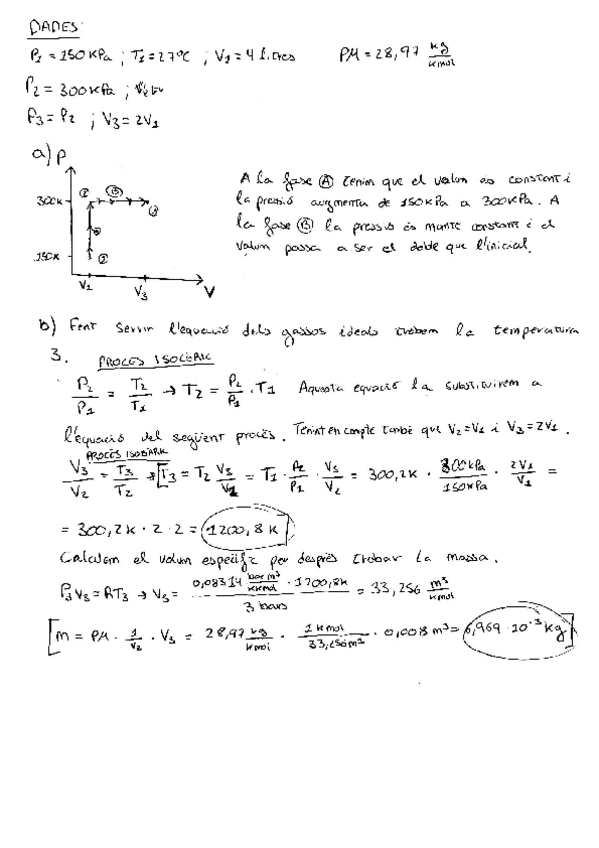 DADES:
P1 = 150 kPa ; T1 = 27ºC ; V1 = 4 litres PM = 28,97 kg/kmol
P2 = 300 kPa ;
P3 = P2 ; V3 = 2V1
a) P
300K
150K
V1 V3 V
A la fase Ⓐ tenim que el volum és constant i
la pressió augmenta de 150 kPa a 300 kPa. A
la fase Ⓑ la pressió es manté constant i el
volum passa a ser el doble que l'inicial.
b) Fent servir l'equació dels gassos ideals trobem la temperatura
3. PROCES ISOCÒRIC
P2/P1 = T2/T1 → T2 = P2/P1 · T1 Aquesta equació la substituirem a
l'equació del següent procès. Tenint en compte també que V2=V1 i V3=2V1.
PROCÈS ISOBÀRIC
V3/V2 = T3/T2 → [T3 = T2 V3/V2 = T1 · P2/P1 · V3/V2 = 300,2K · 300kPa/150kPa · 2V1/V1 =
= 300,2K · 2 · 2 = 1200,8 K]
Calculem el volum específic per després trobar la massa.
P3V3=RT3 → V3 = 0,08314 bar m³/kkmol · 1200,8K / 3 bars = 33,256 m³/kmol
[m = PM · 1/v2 · V3 = 28,97 kg/kmol · 1 kmol/33,256m³ · 0,008 m³ = 6,969 · 10⁻³ kg]